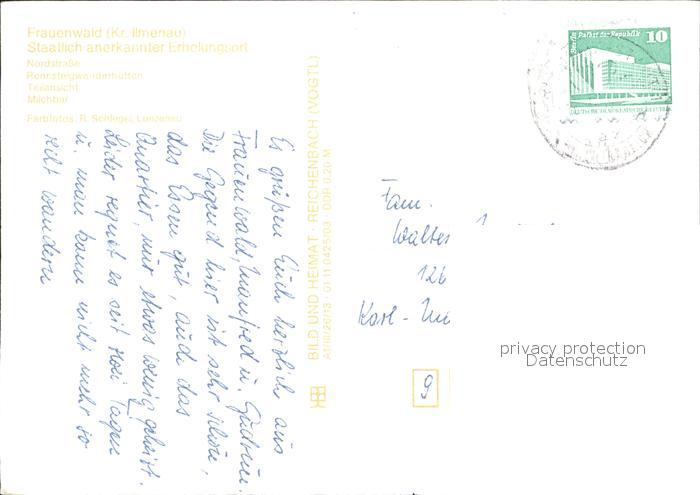 Frauenwald (Kr. Ilmenau)
Staatlich anerkannter Erholungsort
Nordstraße
Rennsteigwanderhütten
Teilansicht
Milchbar
Farbfotos: R. Schlegel, Lunzenau
BILD UND HEIMAT · REICHENBACH (VOGTL)
A1/III/26/13 · 01 11 0425/03 · DDR 0,20 M
Es grüßen Euch herzlich aus
Frauenwald, Manfred u. Gudrun
Die Gegend hier ist sehr schön,
das Essen gut, auch das
Quartier, nur etwas wenig geheizt.
Leider regnet es seit Tagen
u. man kann nicht mehr so
recht wandern
Berlin Palast der Republik
10
DEUTSCHE DEMOKRATISCHE REPUBLIK
Fam.
Walter
126
Karl-
9
privacy protection
Datenschutz